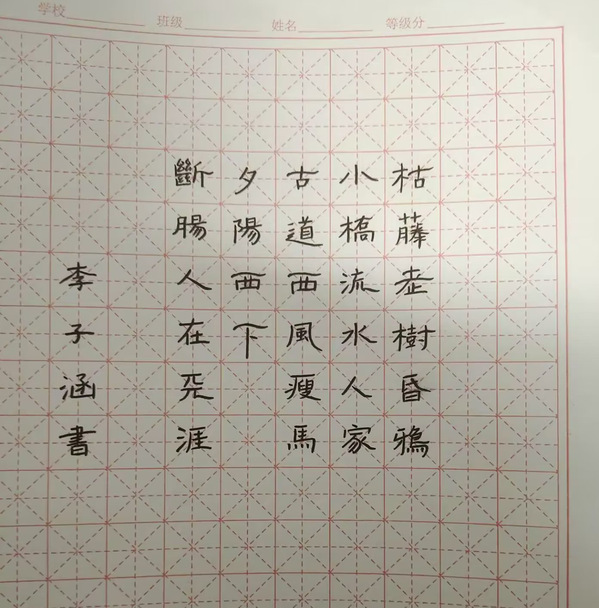 学校 班级 姓名 等级分
枯藤老樹昏鴉
小橋流水人家
古道西風瘦馬
夕陽西下
斷腸人在天涯
李子涵書